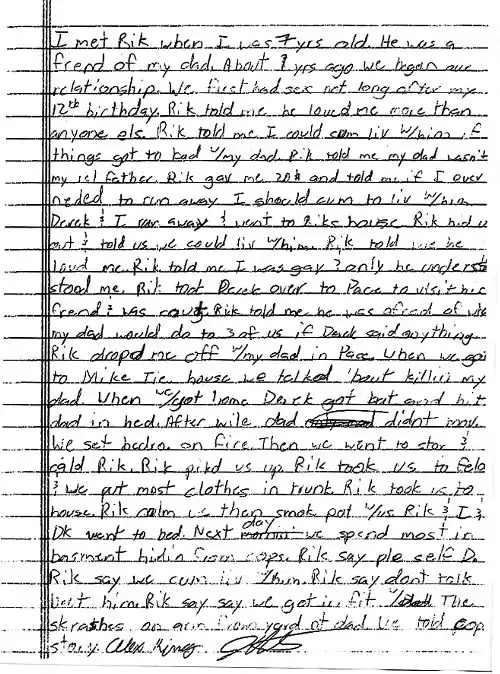 I met Rik when I was 7 yrs old. He was a
frend of my dad. About 1 yrs ago we began our
relationship. We first had sex not long after my
12th birthday. Rik told me he loved me more than
anyone els. Rik told me I could cum liv w/him if
things got to bad w/my dad. Rik told me my dad wasn't
my rel father. Rik gav me 20$ and told me if I ever
neded to run away I should cum to liv w/him
Derek & I ran away & went to Riks house. Rik hid us
out & told us we could liv w/him. Rik told me he
loved me. Rik told me I was gay & only he under
stood me. Rik took Derek over to Pace to visit his
frend & was caut Rik told me he was afread of
my dad would do to 3 of us if Derek said anything.
Rik droped me off w/my dad in Pace. When we got
to Mike Tic house we talked 'bout killin my
dad. When we/got home Derek got bat and hit
dad in hed. After wile dad didnt mov.
We set bedrm on fire. Then we went to stor &
cald Rik. Rik pikd us up. Rik took us to
& we put most clothes in trunk. Rik took us to
house. Rik calm us then smok pot w/us Rik & I &
Dk went to bed. Next day we spend most in
basment hidin from cops. Rik say ple self D.
Rik say we cum liv w/him. Rik say dont talk
bout him. Rik say say we got in fit w/dad The
skrashes on arm from yard at dad we told cop
story. Alex King